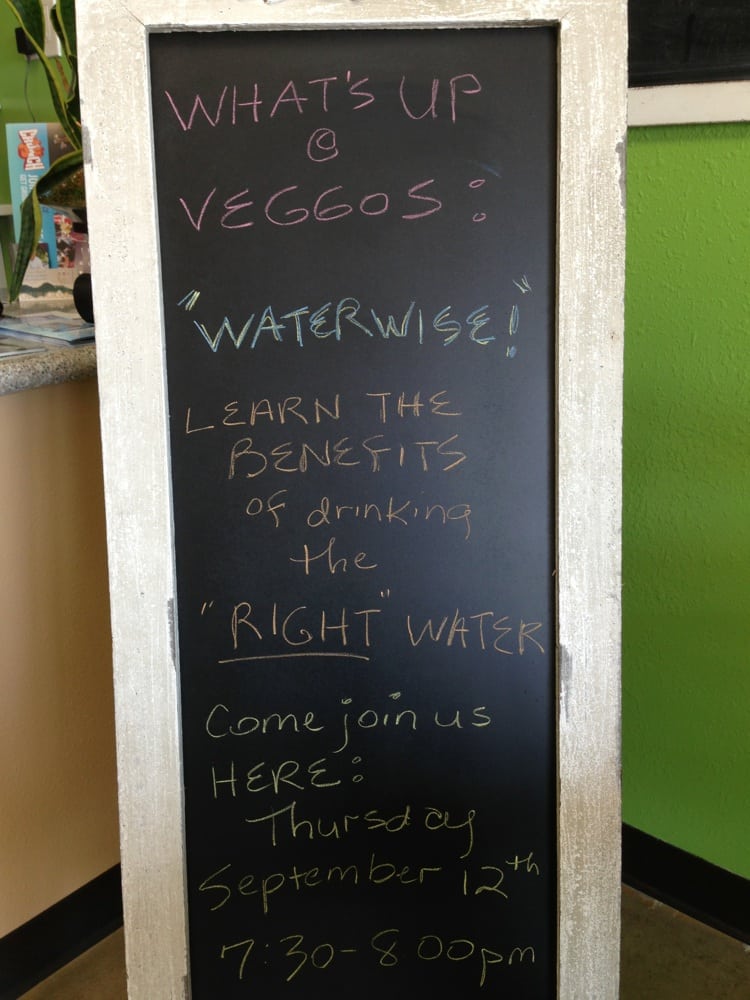 WHAT'S UP
@
VEGGOS:
"WATERWISE!"
LEARN THE
BENEFITS
of drinking
the
"RIGHT" WATER
Come join us
HERE:
Thursday
September 12th
7:30-8:00pm